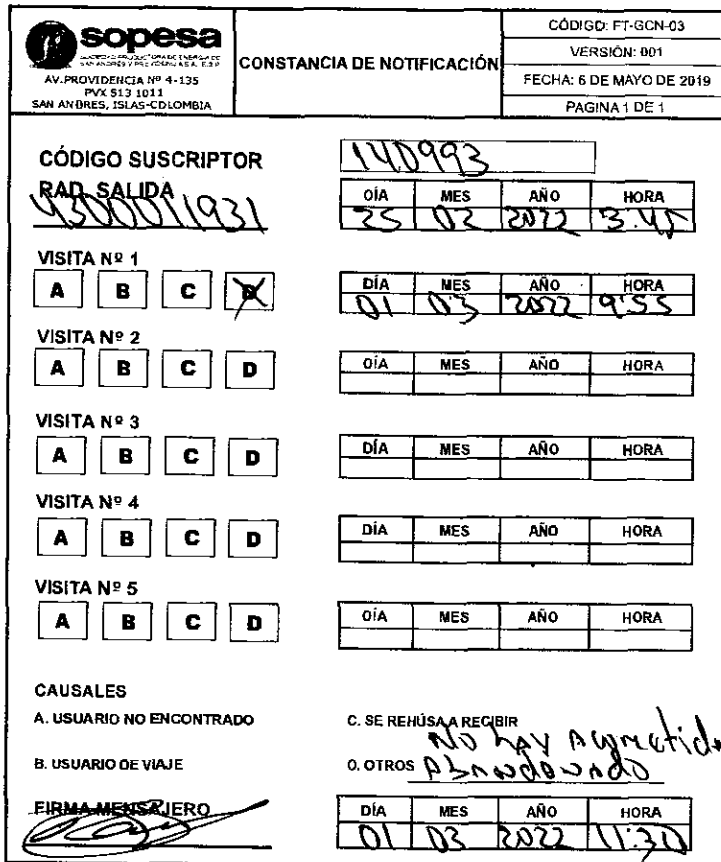 sopesa
SOCIEDAD PRODUCTORA DE ENERGIA DE
SAN ANDRES Y PROVIDENCIA S.A. E.S.P
AV.PROVIDENCIA Nº 4-135
PVX 513 1011
SAN ANDRES, ISLAS-COLOMBIA
CONSTANCIA DE NOTIFICACIÓN
CÓDIGO: FT-GCN-03
VERSIÓN: 001
FECHA: 6 DE MAYO DE 2019
PAGINA 1 DE 1
CÓDIGO SUSCRIPTOR 140993
RAD. SALIDA
4300011931
DÍA MES AÑO HORA
25 02 2022 3:45
VISITA Nº 1
A B C D
DÍA MES AÑO HORA
01 03 2022 9:55
VISITA Nº 2
A B C D
DÍA MES AÑO HORA
VISITA Nº 3
A B C D
DÍA MES AÑO HORA
VISITA Nº 4
A B C D
DÍA MES AÑO HORA
VISITA Nº 5
A B C D
DÍA MES AÑO HORA
CAUSALES
A. USUARIO NO ENCONTRADO
C. SE REHÚSA A RECIBIR
No hay
B. USUARIO DE VIAJE
D. OTROS Abandonado
FIRMA MENSAJERO
DÍA MES AÑO HORA
01 03 2022 11:30